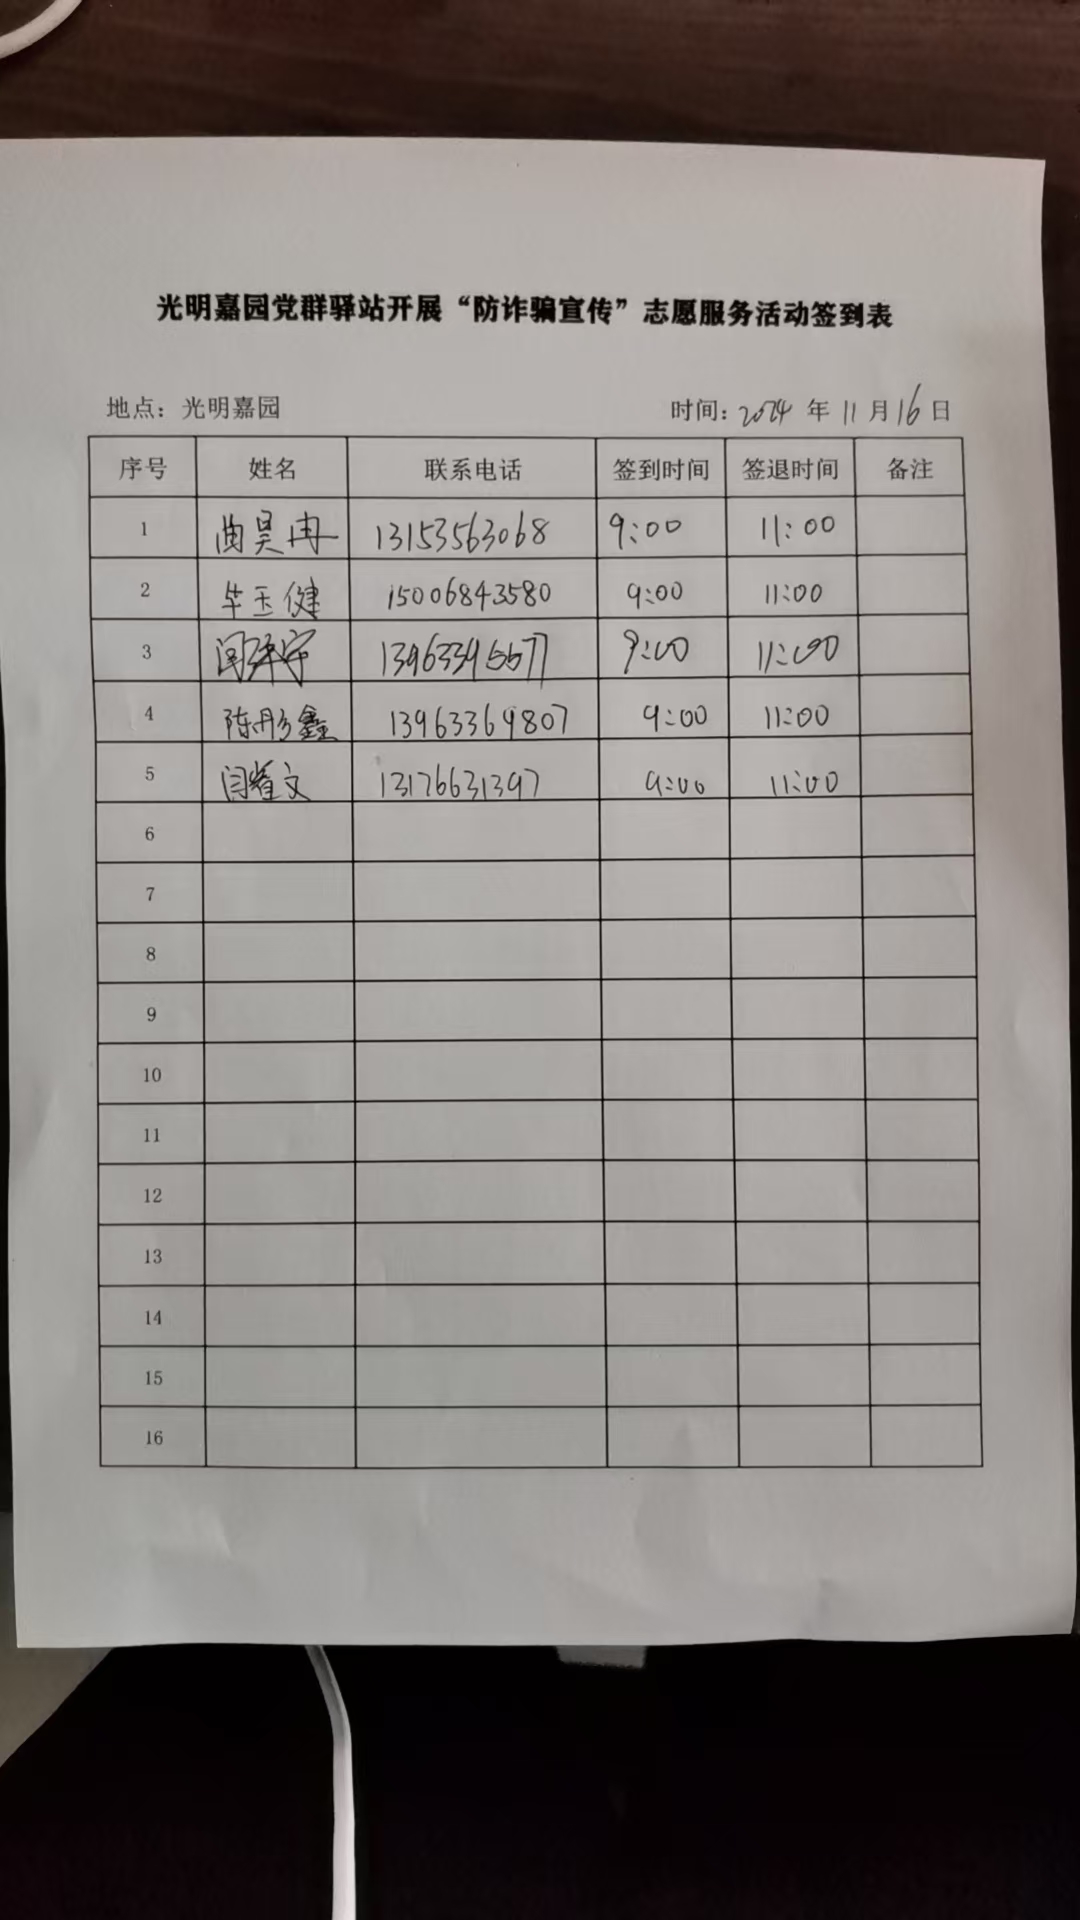 光明嘉园党群驿站开展“防诈骗宣传”志愿服务活动签到表
地点：光明嘉园 时间：2024 年 11 月 16 日
序号 姓名 联系电话 签到时间 签退时间 备注
1 曲昊冉 13153563068 9:00 11:00
2 毕玉健 15006843580 9:00 11:00
3 闫 13963395577 9:00 11:00
4 陈彤鑫 13963369807 9:00 11:00
5 闫 文 13176631397 9:00 11:00
6
7
8
9
10
11
12
13
14
15
16